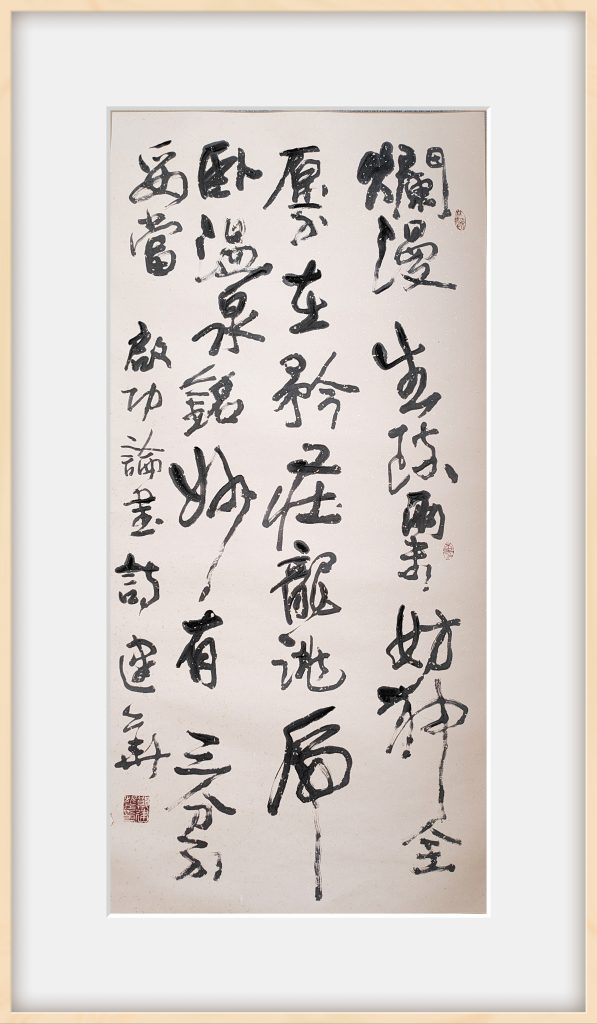 爛漫生疏兩未妨神全
原不在矜莊龍跳虎
卧温泉銘妙有三分不
妥當 啟功論書詩 建華